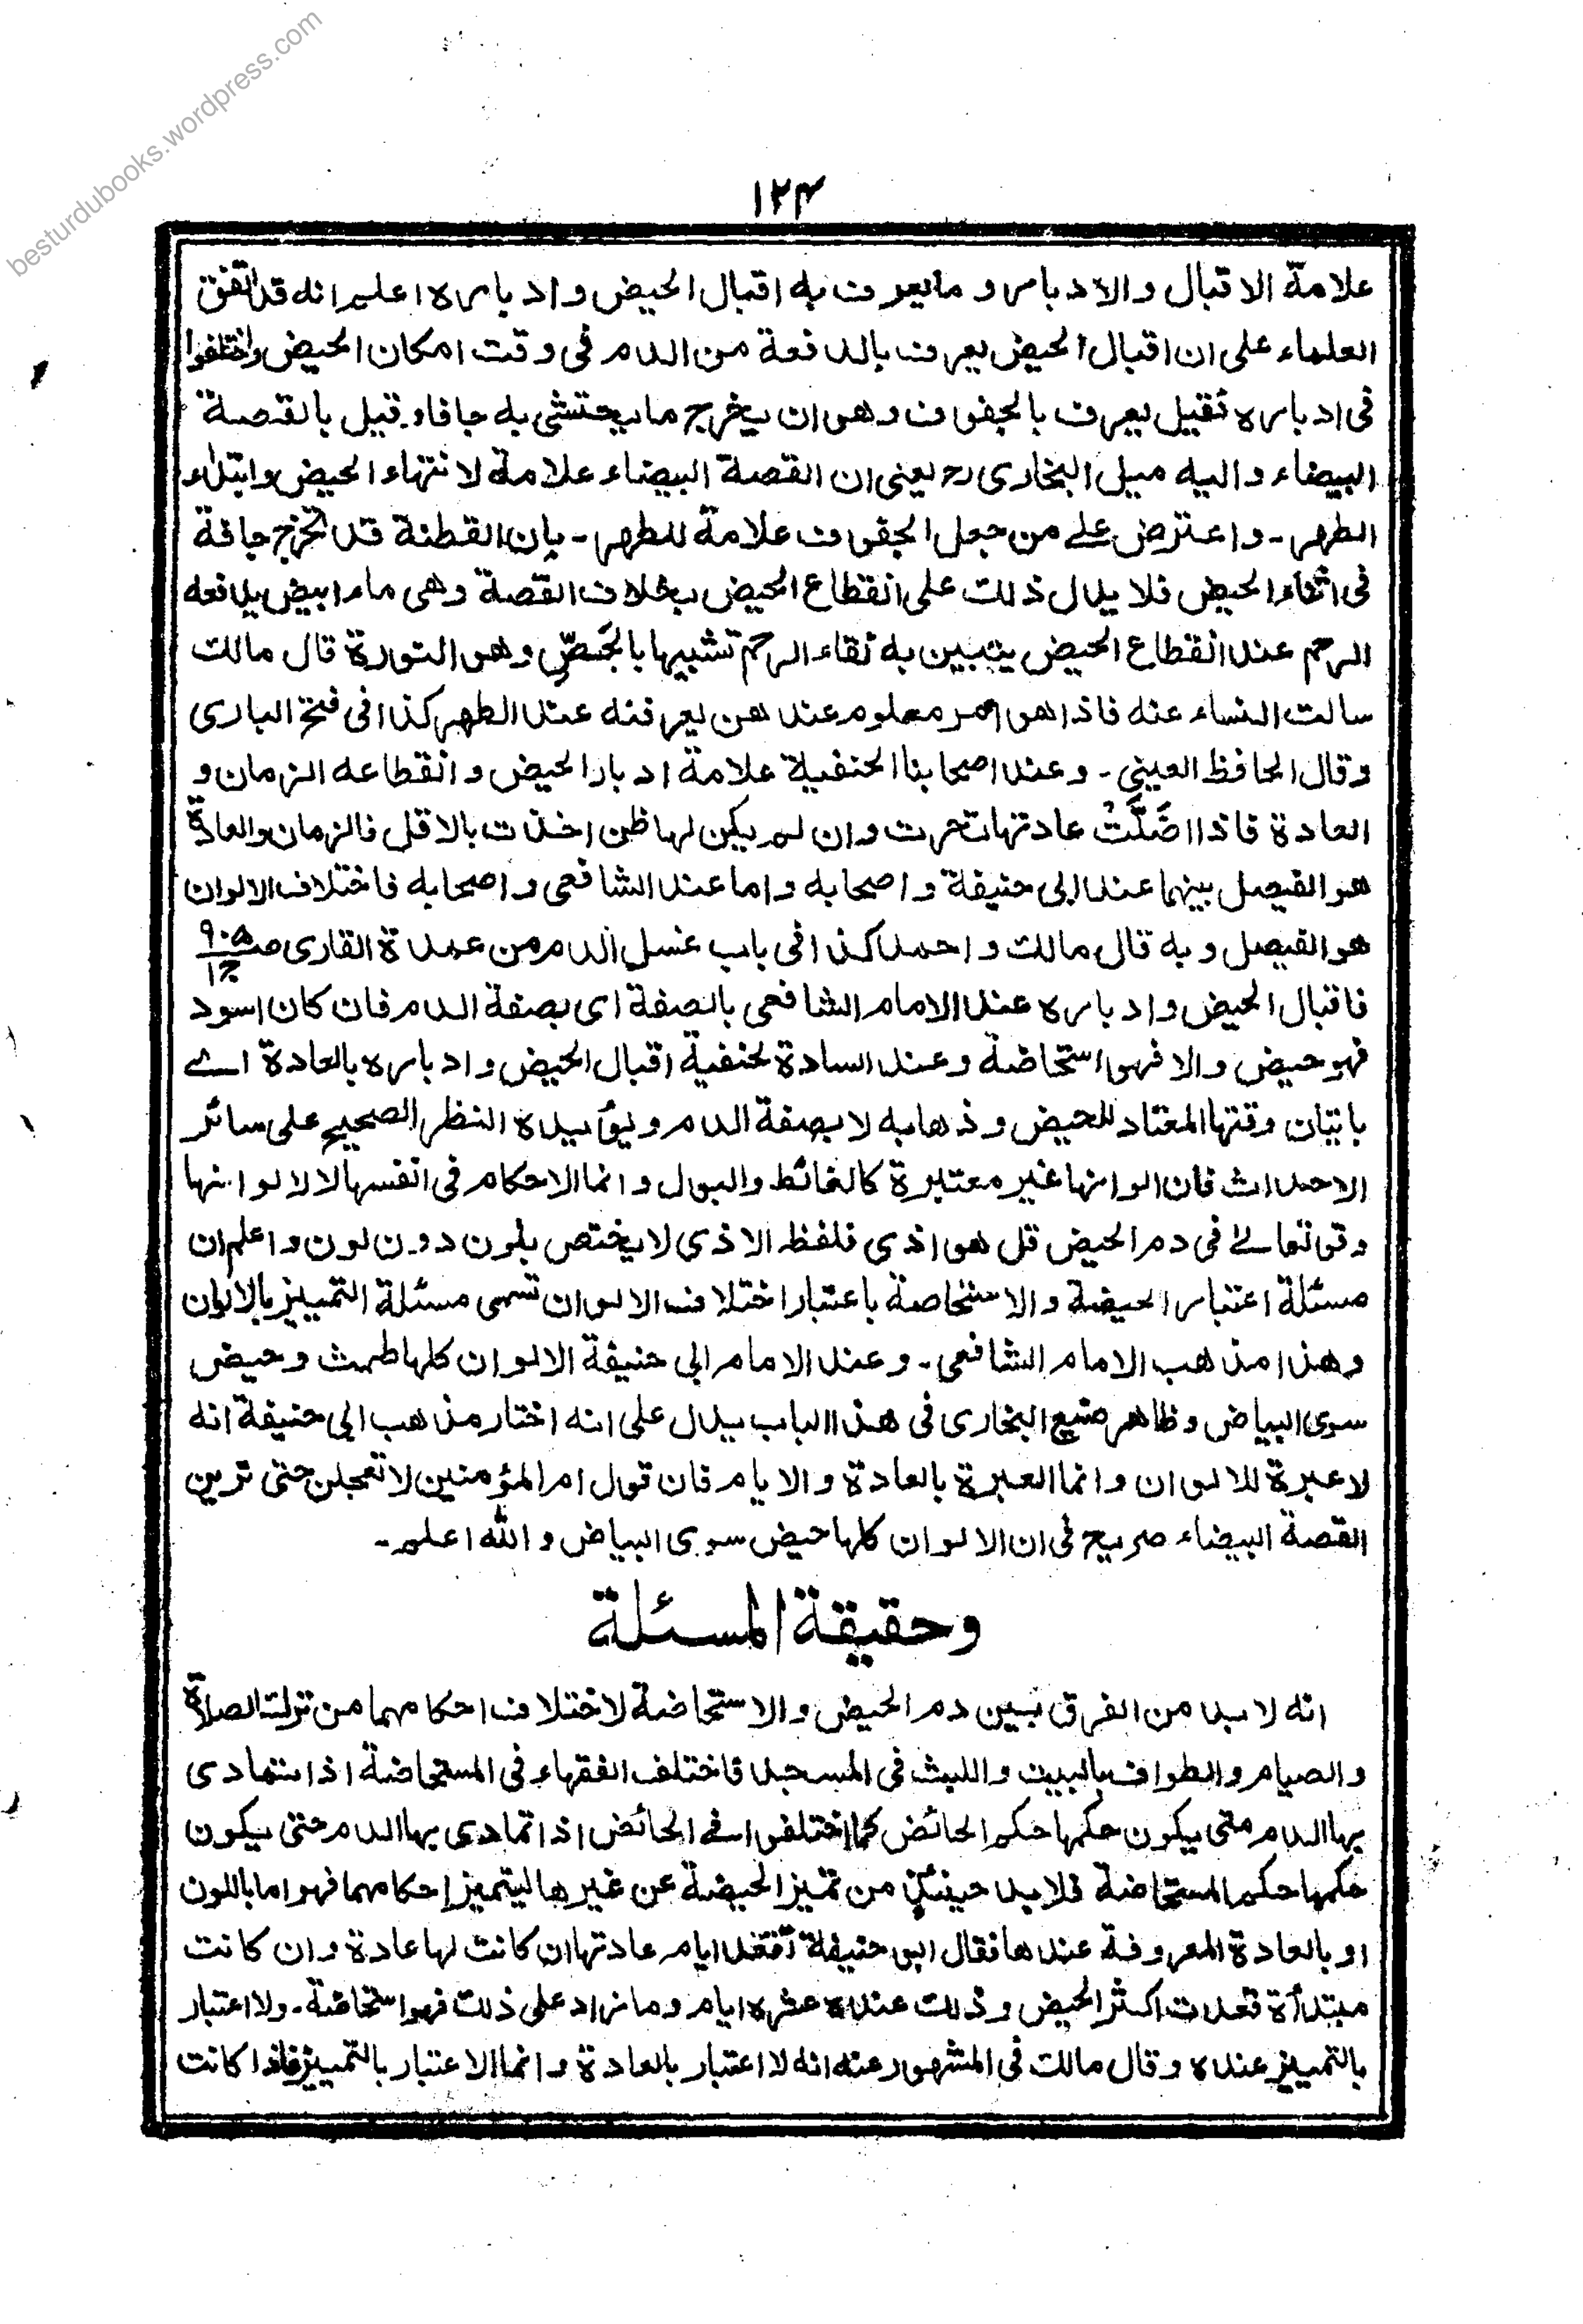 besturdubooks.wordpress.com
۱۲۴
علامة الاقبال والادبار وما يعرف به اقبال الحيض وادباره اعلم انه قد اتفق
العلماء على ان اقبال الحيض يعرف بالدفعة من الدم فى وقت امكان الحيض واختلفوا
فى ادباره فقيل يعرف بالجفوف وهو ان يخرج ما يحتشى به جافا وقيل بالقصة
البيضاء واليه ميل البخارى رح يعنى ان القصة البيضاء علامة لانتهاء الحيض وابتداء
الطهر۔ واعترض على من جعل الجفوف علامة للطهر۔ بان القطنة قد تخرج جافة
فى اثناء الحيض فلا يدل ذلك على انقطاع الحيض بخلاف القصة وهى ماء ابيض يدفعه
الرحم عند انقطاع الحيض يتبين به نقاء الرحم تشبيها بالجَصِّ وهو النورة قال مالك
سالت النساء عنه فاذا هو امر معلوم عندهن يعرفنه عند الطهر كذا فى فتح البارى
وقال الحافظ العينى۔ وعند اصحابنا الحنفية علامة ادبار الحيض وانقطاعه الزمان و
العادة فاذا اضَلَّتْ عادتها تحرت وان لم يكن لها ظن اخذت بالاقل فالزمان والعادة
هو الفيصل بينهما عند ابى حنيفة واصحابه واما عند الشافعى واصحابه فاختلاف الالوان
هو الفيصل وبه قال مالك واحمد كذا فى باب غسل الدم من عمدة القارى صـ ۹۰۵ ج۱
فاقبال الحيض وادباره عند الامام الشافعى بالصفة اى بصفة الدم فان كان اسود
فهو حيض والا فهو استحاضة وعند السادة لحنفية اقبال الحيض وادباره بالعادة اے
باتيان وقتها المعتاد للحيض وذهابه لا بصفة الدم ويؤيده النظر الصحيح على سائر
الاحداث فان الوانها غير معتبرة كالغائط والبول وانما الاحكام فى انفسها لا لالوانها
وقوله تعالے فى دم الحيض قل هو اذى فلفظ الاذى لا يختص بلون دون لون واعلم ان
مسئلة اعتبار الحيضة والاستحاضة باعتبار اختلاف الالوان تسمى مسئلة التمييز بالالوان
وهذا مذهب الامام الشافعى۔ وعند الامام ابى حنيفة الالوان كلها طمث وحيض
سوى البياض وظاهر صنيع البخارى فى هذا الباب يدل على انه اختار مذهب ابى حنيفة انه
لا عبرة للالوان وانما العبرة بالعادة والايام فان قول ام المؤمنين لا تعجلن حتى ترين
القصة البيضاء صريح فى ان الالوان كلها حيض سوى البياض والله اعلم۔
وحقيقة المسئلة
انه لا بد من الفرق بين دم الحيض والاستحاضة لاختلاف احكامهما من ترك الصلاة
والصيام والطواف بالبيت واللبث فى المسجد فاختلف الفقهاء فى المستحاضة اذا تمادى
بها الدم متى يكون حكمها حكم الحائض كما اختلفوا فى الحائض اذا تمادى بها الدم حتى يكون
حكمها حكم المستحاضة فلا بد حينئذٍ من تميز الحيضة عن غيرها ليتميز احكامهما فهو اما باللون
او بالعادة المعروفة عندها فقال ابو حنيفة تقعد ايام عادتها ان كانت لها عادة وان كانت
مبتدأة قعدت اكثر الحيض وذلك عنده عشرة ايام وما زاد على ذلك فهو استحاضة۔ ولا اعتبار
بالتمييز عنده وقال مالك فى المشهور عنه انه لا اعتبار بالعادة وانما الاعتبار بالتمييز فاذا كانت